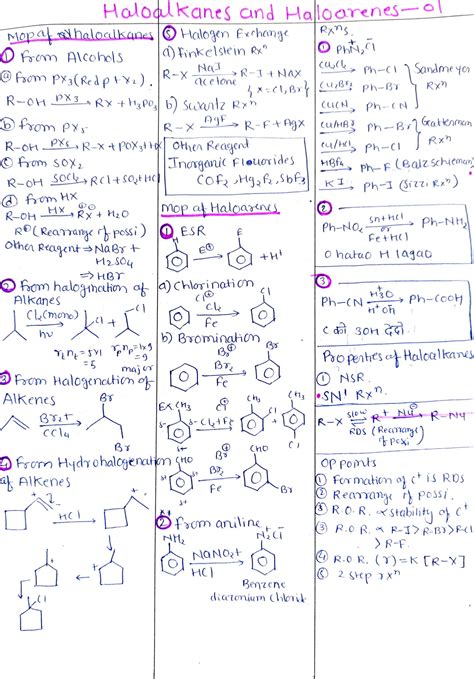 Haloalkanes and Haloarenes-01
MOP of Haloalkanes
① From Alcohols
a) From PX3 (Red p + X2)
R-OH PX3 RX + H3PO3
b) from PX5
R-OH PX5 R-X + POX3 + HX
c) From SOX2
R-OH SOCl2 RCl + SO2 + HCl
d) From HX
R-OH HX RX + H2O
R⊕ (Rearrange if possi)
Other Reagent → NaBr +
H2SO4
⇒ HBr
② From halogination of
Alkanes
Cl2(mono)
hν
Cl
Cl
= 5
= 9
major
③ From Halogenation of
Alkenes
Br2 +
CCl4
Br
Br
④ From Hydrohalogenation
of Alkenes
HCl
+
+
+
Cl
⑤ Halogen Exchange
a) Finkelstein Rxn
R-X NaI R-I + NaX
acetone {X = Cl, Br}
b) Swartz Rxn
R-X AgF R-F + AgX
Other Reagent
Inorganic Flourides
CoF2, Hg2F2, SbF3
MOP of Haloarenes
① ESR
E⊕
E
+ H+
a) Chlorination
Cl⊕
Cl2
Fe
Cl
b) Bromination
Br⊕
Br2
Fe
Br
Ex CH3
Cl2 + Fe
CH3
Cl
+
CH3
Cl
CHO
Br⊕
Br2
Fe
CHO
Br
② From aniline
NH2
NaNO2 +
HCl
N2Cl-
Benzene
diazonium Chlorid
Rxns.
① PhN2Cl
Cu2Cl2 Ph-Cl
Cu2Br2 Ph-Br
CuCN Ph-CN
Sandmeyer
Rxn
Cu/HBr Ph-Br
Cu/HCl Ph-Cl
Gatterman
Rxn
HBF4 Ph-F (Balzschieman)
KI Ph-I
②
Ph-NO2 Sn+HCl Ph-NH2
Fe+HCl
O hatao H lagao
③
Ph-CN H3O Ph-COOH
H+OH
C को 3OH देदो
Properties of Haloalkanes
① NSR
• SN1 Rxn.
R-X slow R+ Nu R-Nu
RDS (Rearrange
if possi)
OP points
① Formation of C+ is RDS
② Rearrange if possi.
③ R.O.R. ∝ stability of C+
③ R.O.R. ∝ R-I > R-Br > R-Cl
> R-F.
④ R.O.R. (r) = K [R-X]
⑤ 2 step rxn